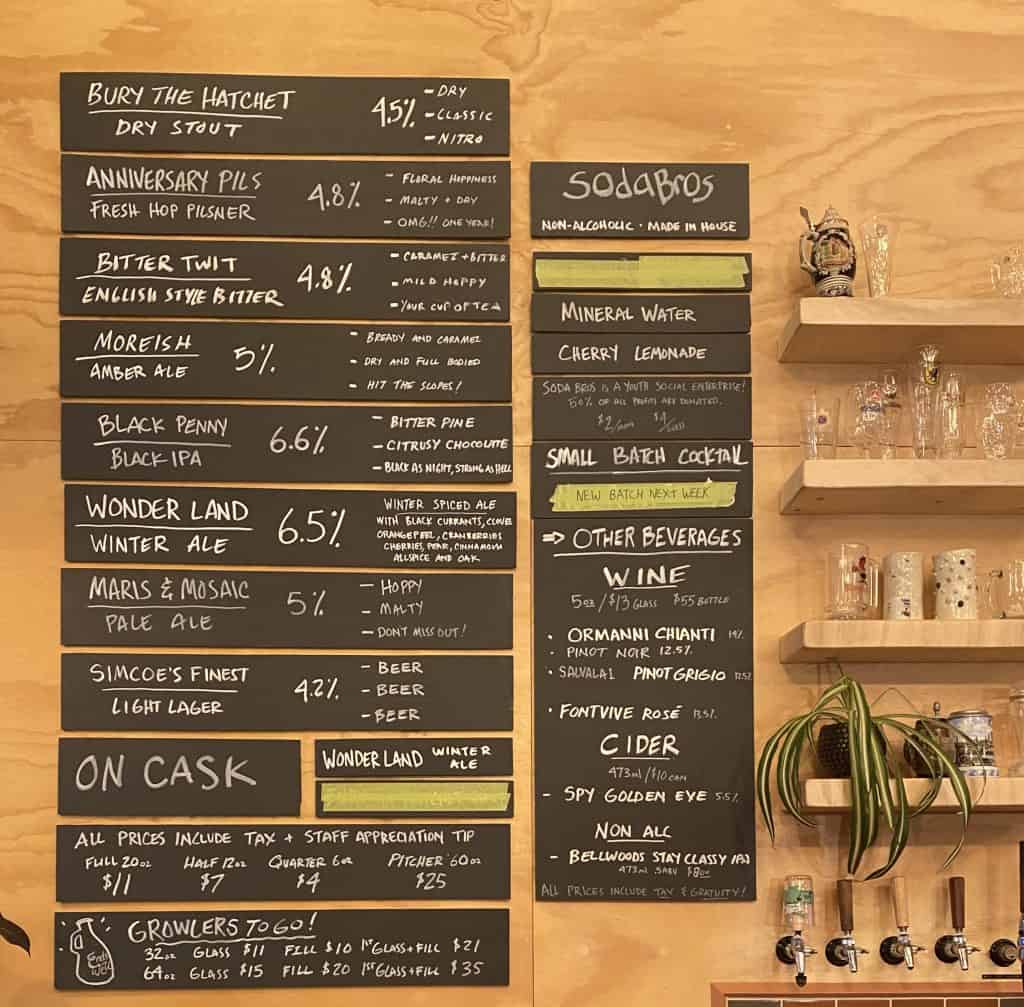 BURY THE HATCHET
DRY STOUT
4.5%
- DRY
- CLASSIC
- NITRO
ANNIVERSARY PILS
FRESH HOP PILSNER
4.8%
- FLORAL HOPPINESS
- MALTY + DAY
- OMG!! ONE YEAR!
BITTER TWIT
ENGLISH STYLE BITTER
4.8%
- CARAMEL + BITTER
- MILD HOPPY
- YOUR CUP OF TEA
MOREISH
AMBER ALE
5%
- BREADY AND CARAMEL
- DRY AND FULL BODIED
- HIT THE SLOPES!
BLACK PENNY
BLACK IPA
6.6%
- BITTER PINE
- CITRUSY CHOCOLATE
- BLACK AS NIGHT, STRONG AS HELL
WONDER LAND
WINTER ALE
6.5%
WINTER SPICED ALE
WITH BLACK CURRANTS, CLOVE
ORANGE PEEL, CRANBERRIES
CHERRIES, PEAR, CINNAMON
ALLSPICE AND OAK
MARIS & MOSAIC
PALE ALE
5%
- HOPPY
- MALTY
- DON'T MISS OUT!
SIMCOE'S FINEST
LIGHT LAGER
4.2%
- BEER
- BEER
- BEER
ON CASK
WONDERLAND WINTER
ALE
ALL PRICES INCLUDE TAX + STAFF APPRECIATION TIP
FULL 20oz HALF 12oz QUARTER 6oz PITCHER 60oz
$11 $7 $4 $25
GROWLERS TO GO!
32oz GLASS $11 FILL $10 1st GLASS + FILL $21
64oz GLASS $15 FILL $20 1st GLASS + FILL $35
SodaBros
NON-ALCOHOLIC · MADE IN HOUSE
MINERAL WATER
CHERRY LEMONADE
SODA BROS IS A YOUTH SOCIAL ENTERPRISE!
50% OF ALL PROFITS ARE DONATED.
$4/GLASS
SMALL BATCH COCKTAIL
NEW BATCH NEXT WEEK
⇒ OTHER BEVERAGES
WINE
5oz/$13 GLASS $55 BOTTLE
· ORMANNI CHIANTI 14%
· PINOT NOIR 12.5%
· SALVALAI PINOT GRIGIO 12.5%
· FONTVIVE ROSÉ 13.5%
CIDER
473ml/$10 CAN
- SPY GOLDEN EYE 5.5%
NON ALC
- BELLWOODS STAY CLASSY IPA
473ml $8
ALL PRICES INCLUDE TAX & GRATUITY!